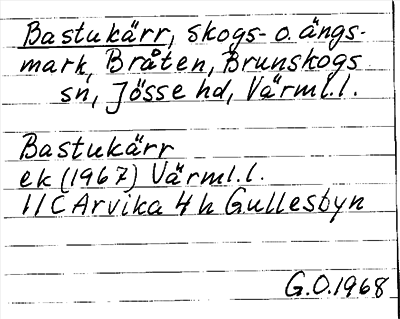 Bastukärr, skogs- o. ängs-
mark, Bråten, Brunskogs
sn, Jösse hd, Värml.l.
Bastukärr
ek (1967) Värml.l.
11C Arvika 4h Gullesbyn
G.O.1968